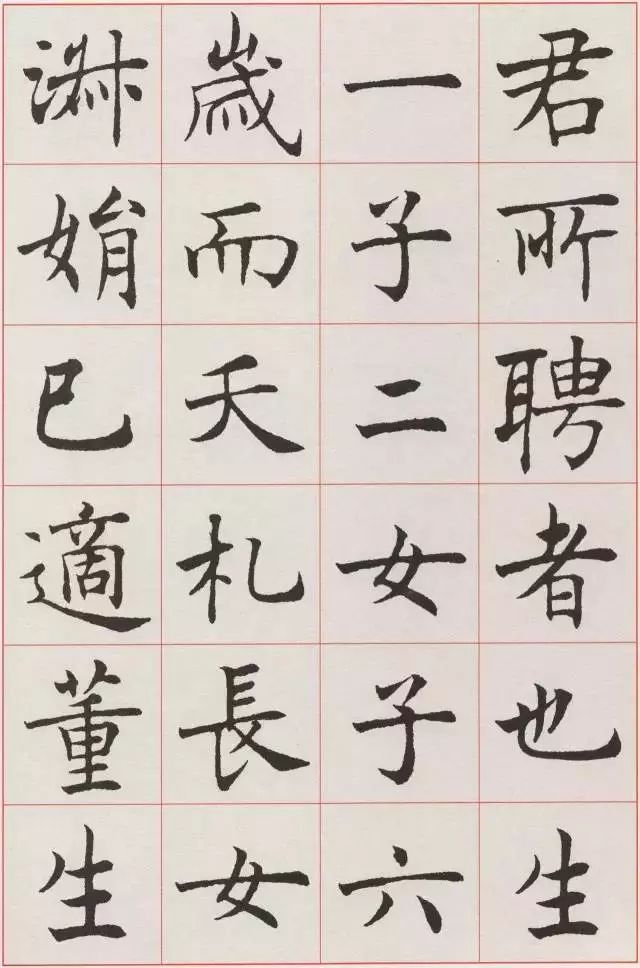 君所聘者也生
一子二女子六
歲而夭札長女
淑娟已適董生